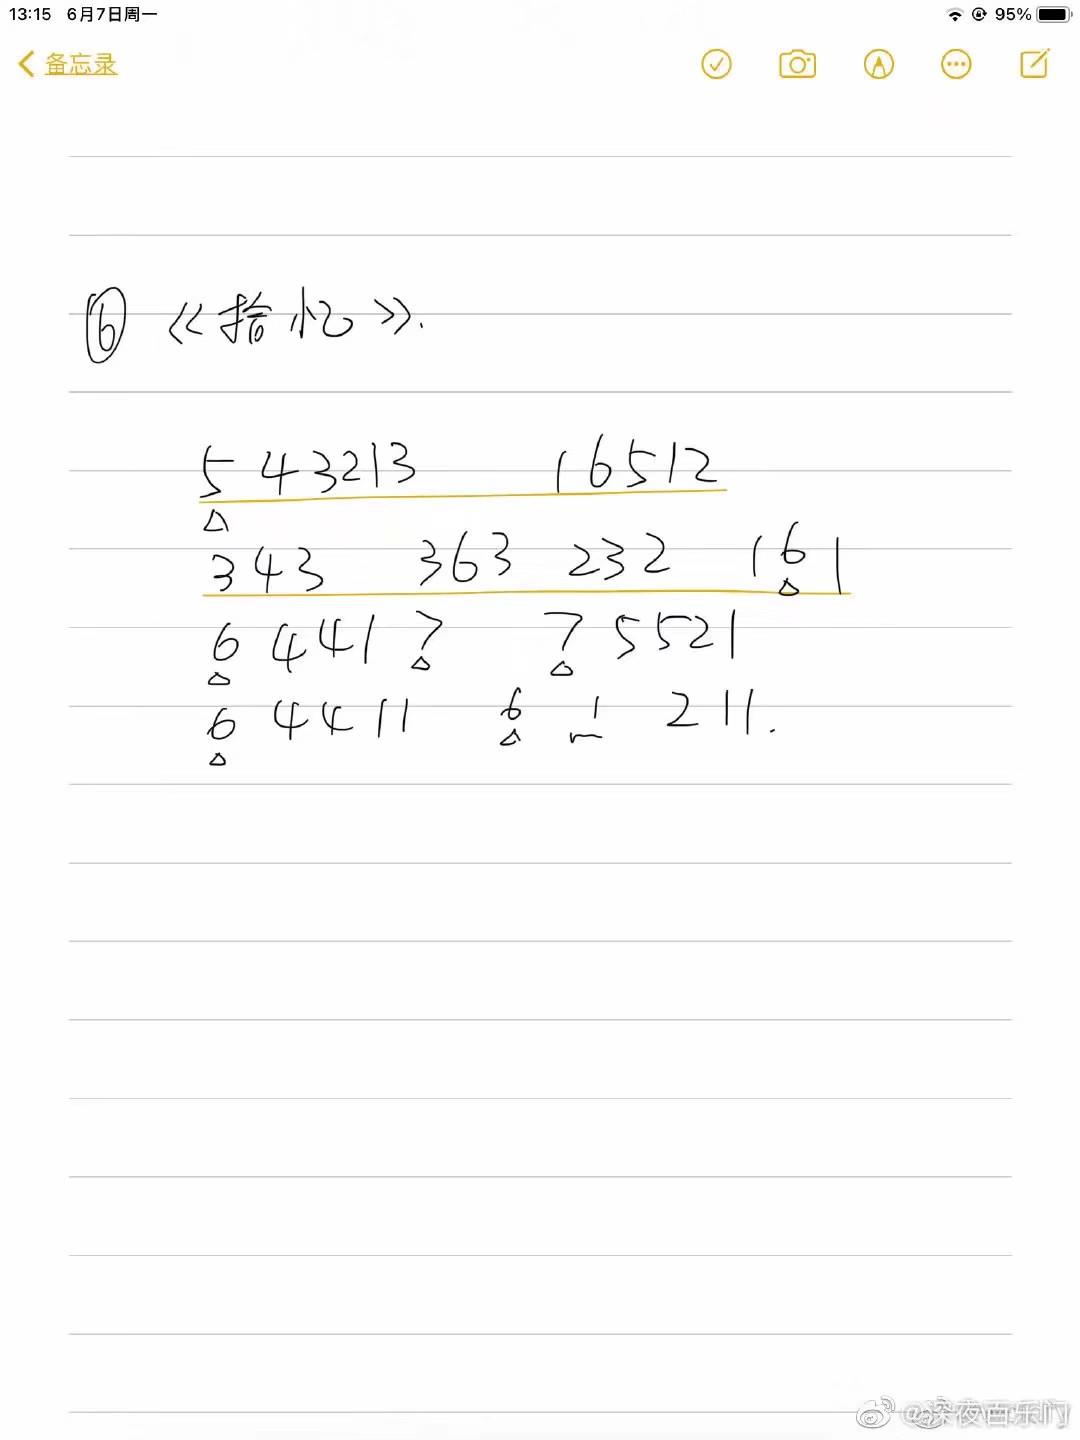 13:15 6月7日周一 95%
备忘录
⑥ 《拾忆》.
5 43213 16512
343 363 232 161
6 441 7 7 5521
6 4411 6 1 211.